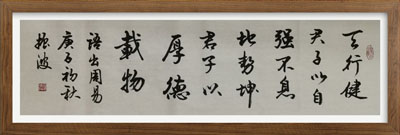 天行健
君子以自
强不息
地势坤
君子以
厚德
載物
語出周易
庚子初秋
振波